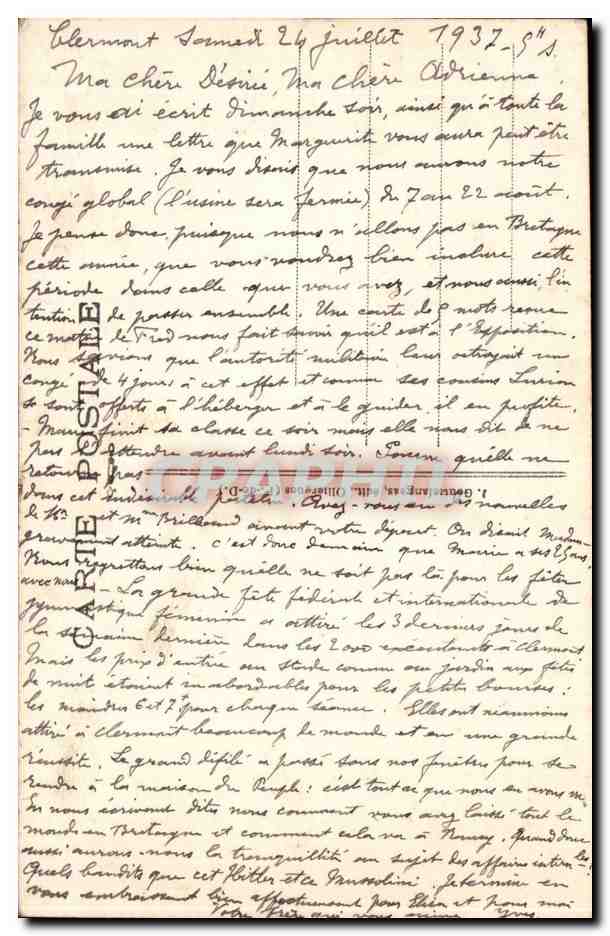 Clermont Samedi 24 juillet 1937 - 5H s.
Ma chère Désirée, Ma chère Adrienne,
Je vous ai écrit dimanche soir, ainsi qu'à toute la
famille une lettre que Marguerite vous aura peut être
transmise. Je vous disais que nous aurons notre
congé global (l'usine sera fermée) du 7 au 22 août.
Je pense donc, puisque nous n'allons pas en Bretagne
cette année, que vous voudrez bien inclure cette
période dans celle que vous avez, et nous aussi, l'in
tention de passer ensemble. Une carte de mots reçue
ce matin de Fred nous fait savoir qu'il est à l'Exposition.
Nous savions que l'autorité militaire leur octroyait un
congé de 4 jours à cet effet et comme ses cousins
se sont offerts à l'héberger et à le guider, il en profite.
- finit sa classe ce soir mais elle nous dit de ne
pas l'attendre avant lundi soir. qu'elle ne
retourne pas
dans cet indésirable patelin. Avez-vous eu des nouvelles
de Mr et Mme avant votre départ. On disait Madame
gravement atteinte. C'est donc demain que a ses 25 ans.
Nous regrettons bien qu'elle ne soit pas là pour les fêter
avec nous. - La grande fête fédérale et internationale de
gymnastique féminine a attiré les 3 derniers jours de
la semaine dernière dans les 2000 exécutants à Clermont
Mais les prix d'entrée au stade comme au jardin aux fêtes
de nuit étaient inabordables pour les petites bourses :
les moindres 6 et 7f pour chaque séance. Elles ont néanmoins
attiré à Clermont beaucoup de monde et eu une grande
réussite. Le grand défilé a passé sous nos fenêtres pour se
rendre à la maison du Peuple : c'est tout ce que nous en avons vu.
En nous écrivant dites nous comment vous avez laissé tout le
monde en Bretagne et comment cela va à . Quand donc
aussi aurons-nous la tranquillité au sujet des affaires intern.les!
Quels bandits que cet Hitler et ce Mussolini. Je termine en
vous embrassant bien affectueusement pour et pour moi
Votre frère qui vous aime Yves
CARTE POSTALE
J. Gouttefangeas, édit., Olliergues (P.-de-D.)
CPAPHIL